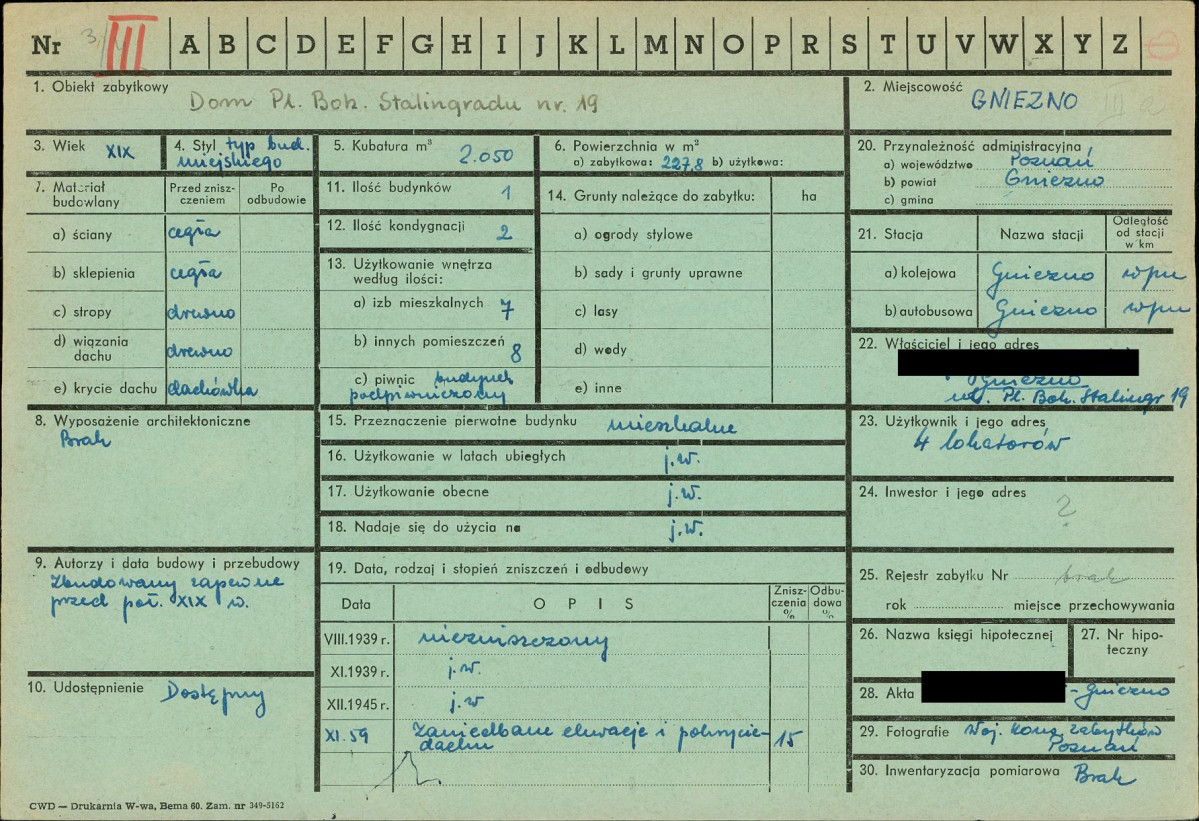 Nr III A B C D E F G H I J K L M N O P R S T U V W X Y Z
1. Obiekt zabytkowy
Dom Pl. Boh. Stalingradu nr. 19
2. Miejscowość
GNIEZNO
3. Wiek XIX
4. Styl typ bud.
miejskiego
5. Kubatura m³ 2.050
6. Powierzchnia w m²
a) zabytkowa: 227,8 b) użytkowa:
7. Materiał
budowlany
Przed znisz-
czeniem
Po
odbudowie
a) ściany cegła
b) sklepienia cegła
c) stropy drewno
d) wiązania
dachu drewno
e) krycie dachu dachówka
8. Wyposażenie architektoniczne
Brak
9. Autorzy i data budowy i przebudowy
Zbudowany zapewne
przed poł. XIX w.
10. Udostępnienie Dostępny
11. Ilość budynków 1
12. Ilość kondygnacji 2
13. Użytkowanie wnętrza
według ilości:
a) izb mieszkalnych 7
b) innych pomieszczeń 8
c) piwnic budynek
podpiwniczony
14. Grunty należące do zabytku: ha
a) ogrody stylowe
b) sady i grunty uprawne
c) lasy
d) wody
e) inne
15. Przeznaczenie pierwotne budynku mieszkalne
16. Użytkowanie w latach ubiegłych j.w.
17. Użytkowanie obecne j.w.
18. Nadaje się do użycia na j.w.
19. Data, rodzaj i stopień zniszczeń i odbudowy
Data
O P I S
Znisz-
czenia
%
Odbu-
dowa
%
VIII.1939 r. niezniszczony
XI.1939 r. j.w.
XII.1945 r. j.w
XI.59 Zaniedbane elewacje i pokrycie
dachu 15
20. Przynależność administracyjna
a) województwo Poznań
b) powiat Gniezno
c) gmina
21. Stacja
Nazwa stacji
Odległość
od stacji
w km
a) kolejowa Gniezno w/m
b) autobusowa Gniezno w/m
22. Właściciel i jego adres
Gniezno
ul. Pl. Boh. Stalingr 19
23. Użytkownik i jego adres
4 lokatorów
24. Inwestor i jego adres
?
25. Rejestr zabytku Nr brak
rok miejsce przechowywania
26. Nazwa księgi hipotecznej
27. Nr hipo-
teczny
28. Akta - Gniezno
29. Fotografie Woj. Kons. zabytków
Poznań
30. Inwentaryzacja pomiarowa Brak
CWD — Drukarnia W-wa, Bema 60. Zam. nr 349-5162